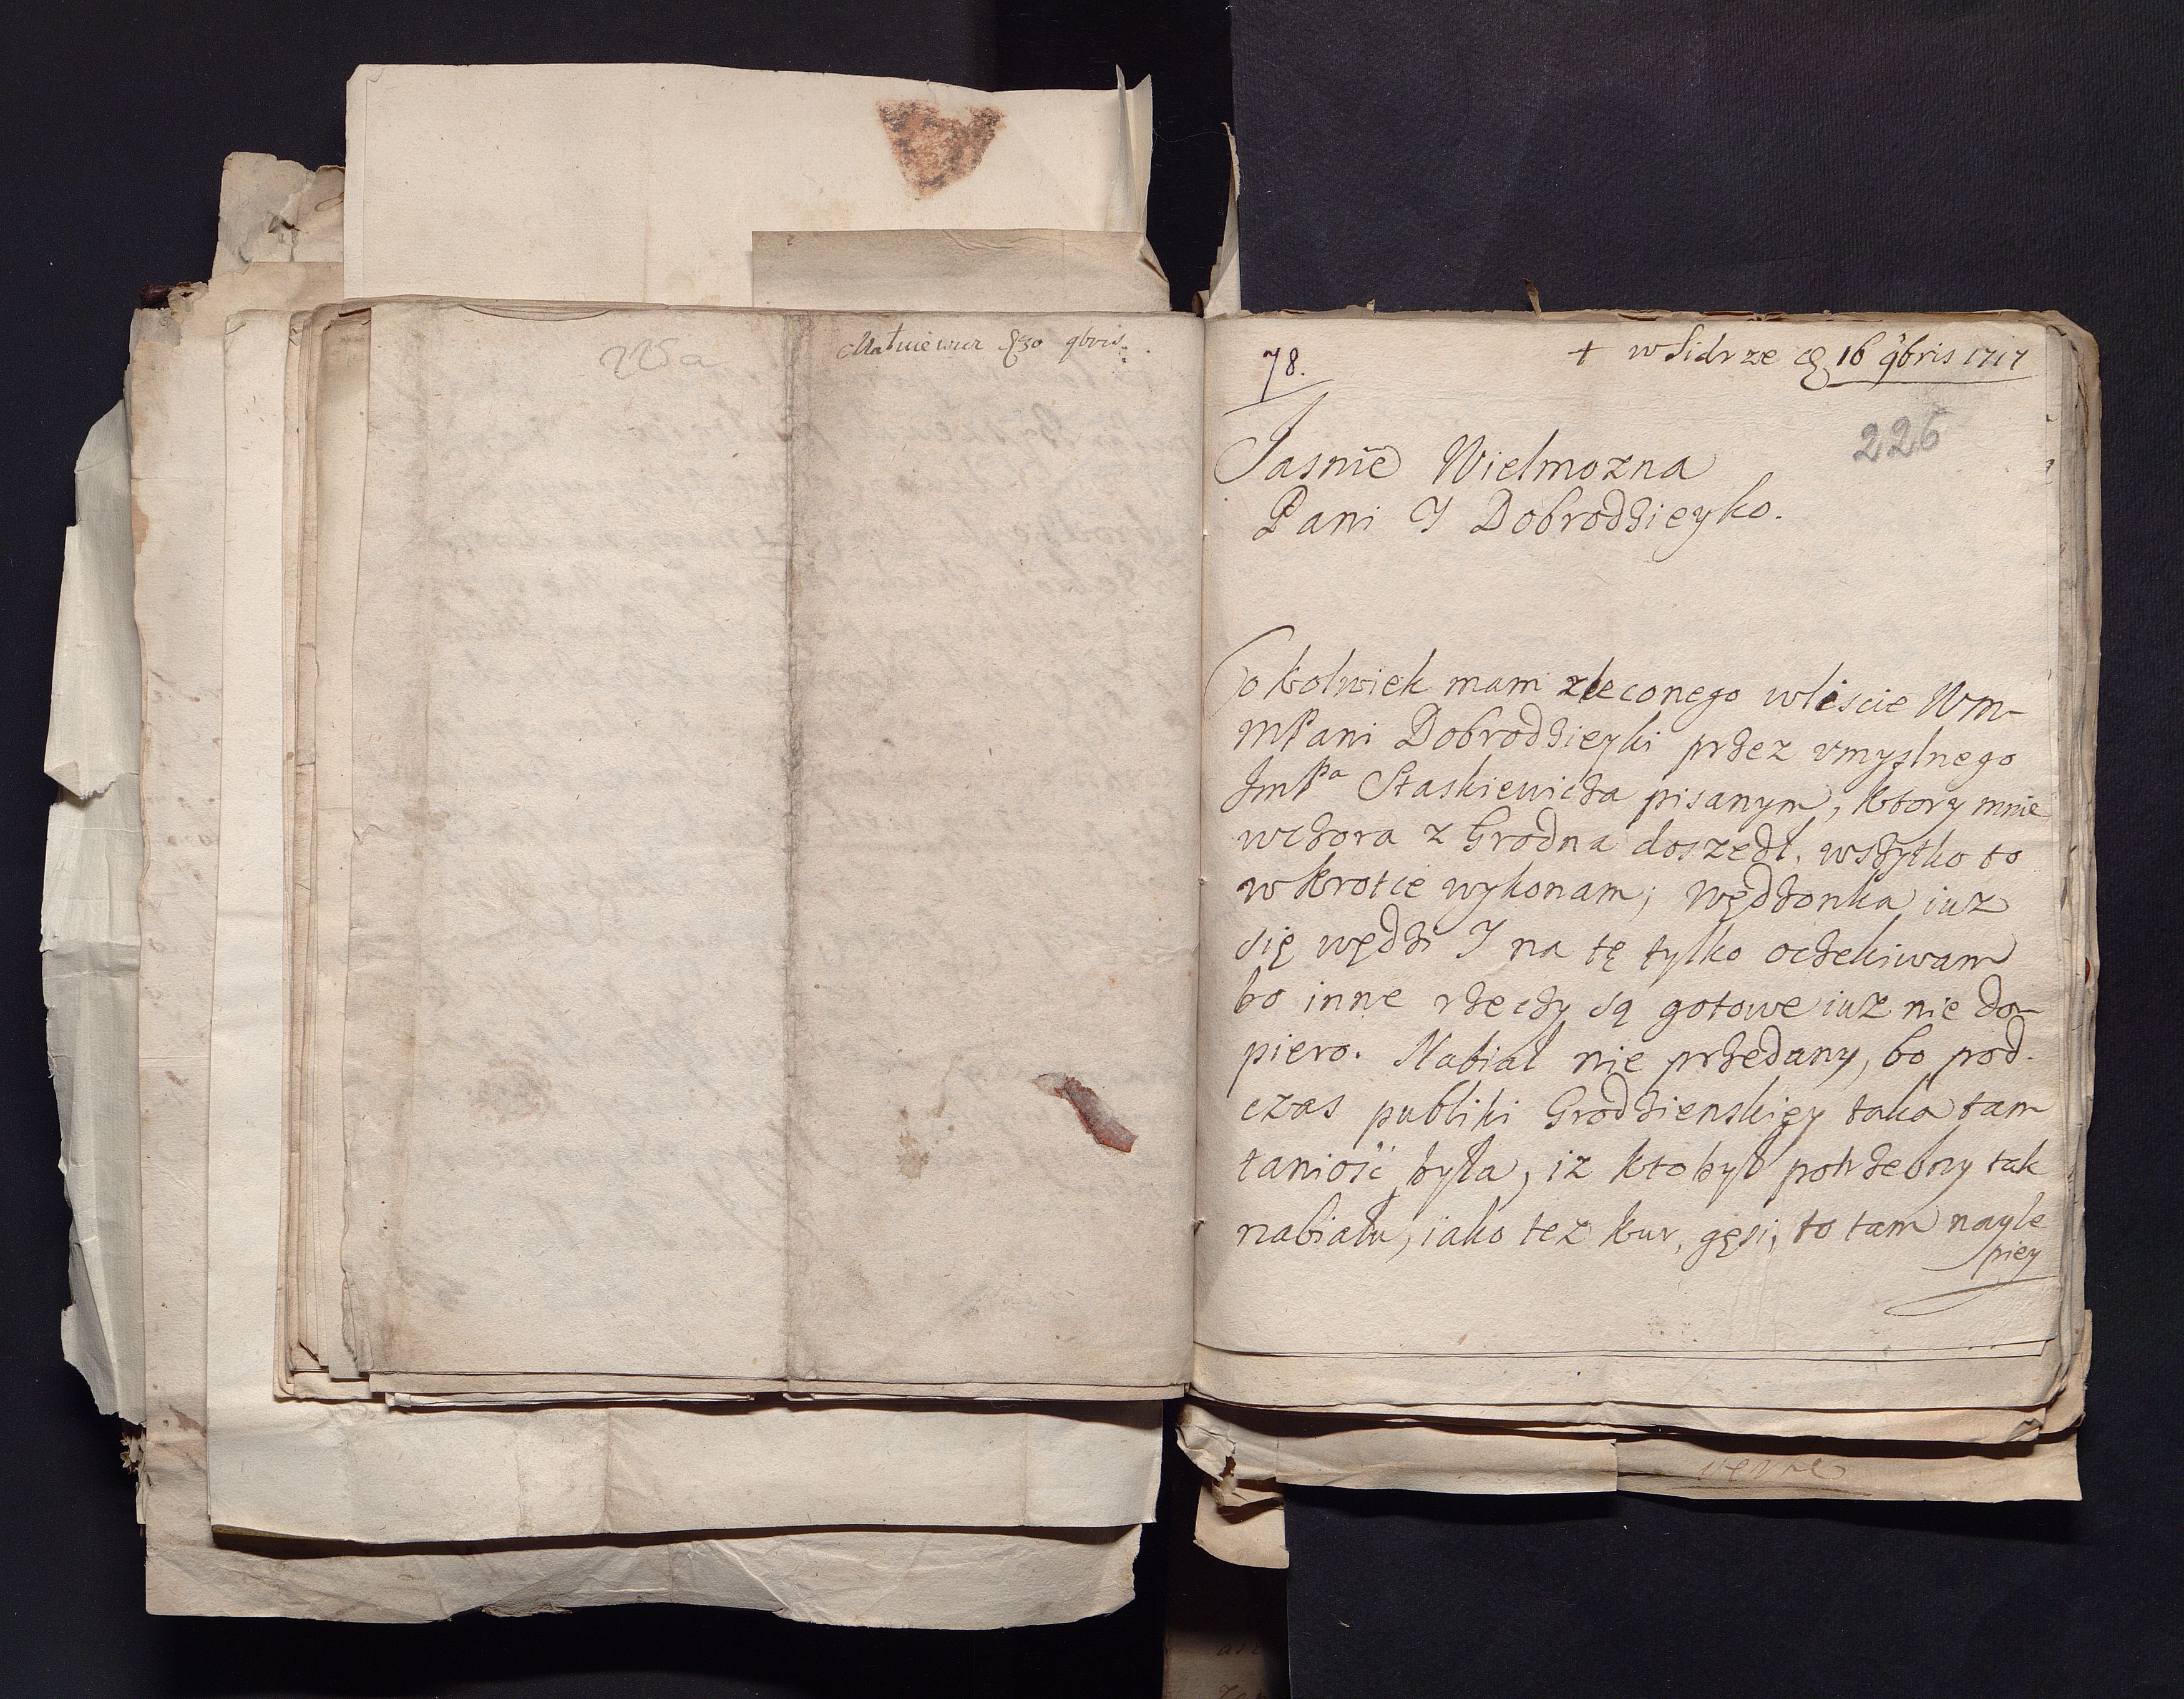 225a
78.
+ w Sidrze 16 9bris 1717
226
Jasnie Wielmozna
Pani I Dobrodzieyko.
Co kolwiek mam zleconego wliscie Wm
MPani Dobrodzieyki przez vmyslnego
JmPa Staskiewicza pisanym, ktory mnie
wczora z Grodna doszedł, wszytko to
w krotce wykonam; wędzonka iuz
się wędzi I na tę tylko oczekiwam
bo inne rzeczy są gotowe iuz nie do
piero. Nabiał nie przedany, bo pod
czas publiki Grodzienskiey taka tam
taniość była, iz kto był potrzebny tak
nabiału, iako tez kur, gęsi, to tam nayle
piey